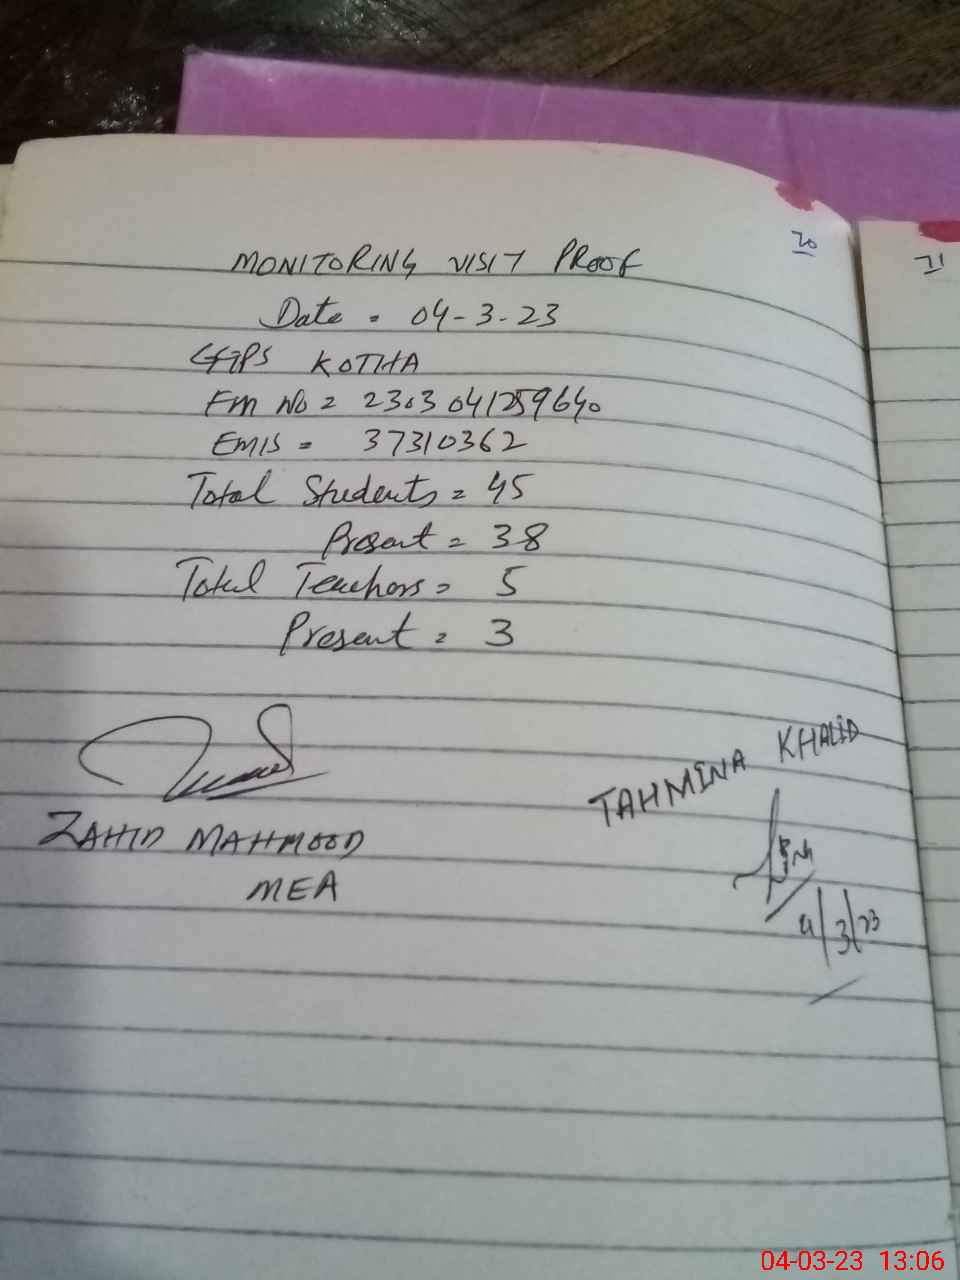 70
71
MONITORING VISIT PROOF
Date = 04-3-23
GGPS KOTHA
Fm No = 2303041259640
EMIS = 37310362
Total Students = 45
Present = 38
Total Teachers = 5
Present = 3
TAHMINA KHALID
ZAHID MAHMOOD
MEA
4/3/23
04-03-23 13:06